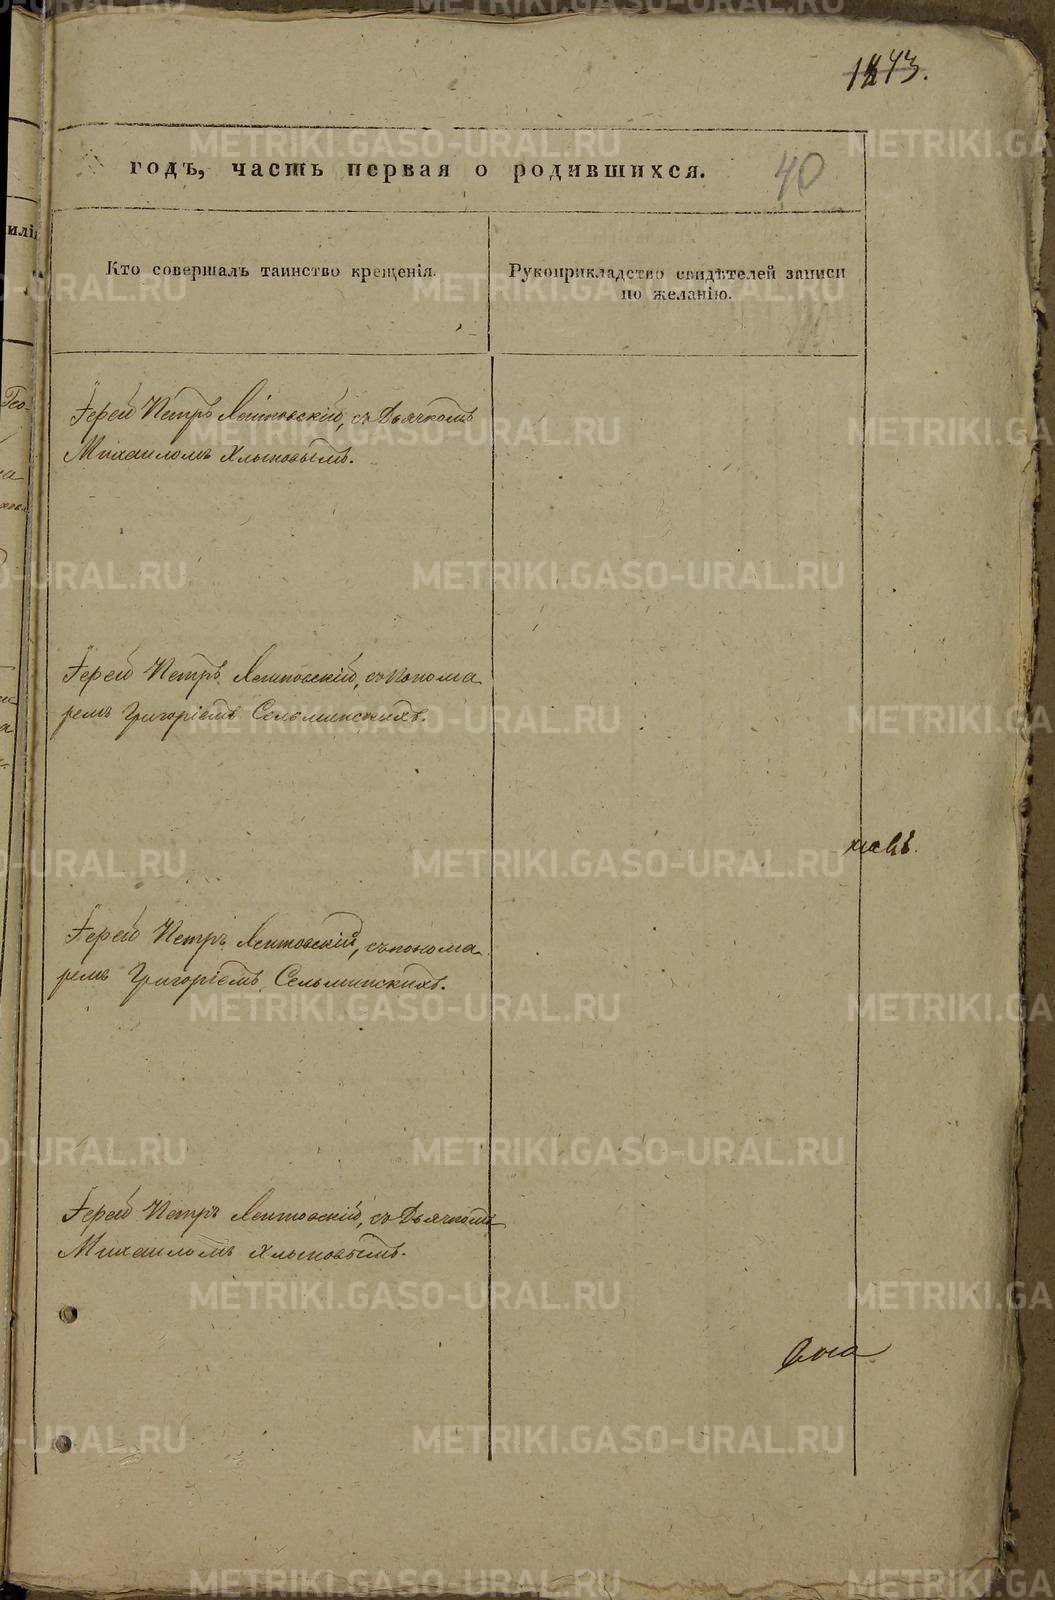 1243.
годъ, часть первая о родившихся.
40
Кто совершалъ таинство крещенія.
Рукоприкладство свидѣтелей записи
по желанію.
Іерей Петръ Лептовскій, съ Дьячкомъ
Михаиломъ Хлыновымъ.
Іерей Петръ Лептовскій, съ понома
ремъ Григоріемъ Сельменскихъ.
Іерей Петръ Лептовскій, съ понома
ремъ Григоріемъ Сельменскихъ.
Іерей Петръ Лептовскій, съ Дьячкомъ
Михаиломъ Хлыновымъ.
METRIKI.GASO-URAL.RU